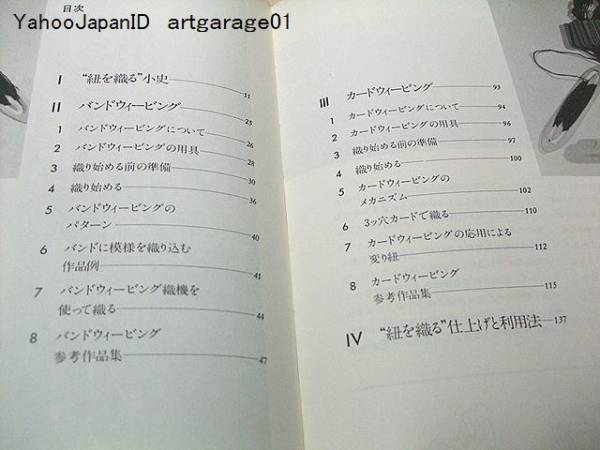 YahooJapanID artgarage01
目次
I "紐を織る"小史 11
II バンドウィービング 25
1 バンドウィービングについて 26
2 バンドウィービングの用具 28
3 織り始める前の準備 30
4 織り始める 36
5 バンドウィービングの
パターン 40
6 バンドに模様を織り込む
作品例 41
7 バンドウィービング織機を
使って織る 44
8 バンドウィービング
参考作品集 47
III カードウィービング 93
1 カードウィービングについて 94
2 カードウィービングの用具 96
3 織り始める前の準備 97
4 織り始める 100
5 カードウィービングの
メカニズム 102
6 3ッ穴カードで織る 110
7 カードウィービングの応用による
変り紐 112
8 カードウィービング
参考作品集 115
IV "紐を織る"仕上げと利用法 137